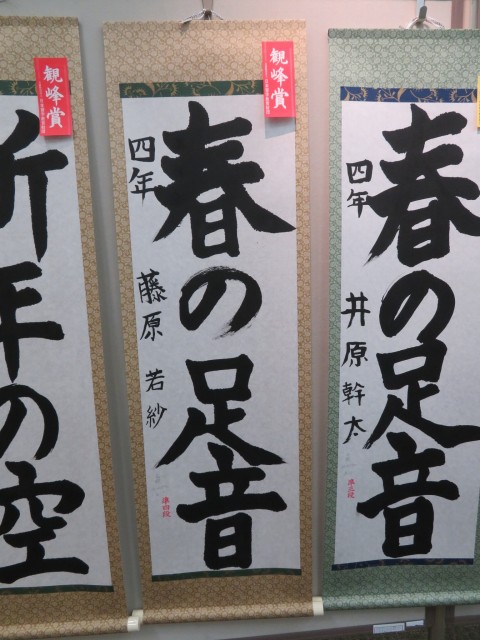 春の足音
四年
井原幹太
準三段
観峰賞
春の足音
四年
藤原若紗
準四段
観峰賞
新年の空